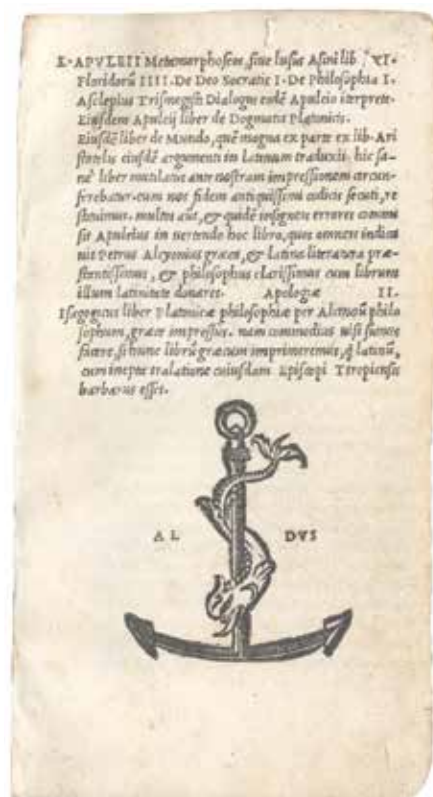 L. APVLEII Metamorphoseos, siue lusus Asini lib. XI.
Floridorū IIII. De Deo Socratis I. De Philosophia I.
Asclepius Trismegisti Dialogus eodē Apuleio īterprete.
Eiusdem Apuleij liber de Dogmatis Platonicis.
Eiusdē liber de Mundo, quē magna ex parte ex lib. Ari
stotelis eiusdē argumenti in latinum traduxit. hic sa-
ne liber mutilatus ante nostram impressionem circun-
ferebatur. cum nos fidem antiquissimi codicis secuti, re
stituimus. multos aūt, & quidē insigneis errores commi
sit Apuleius in uertendo hoc libro, quos omneis indica
uit Petrus Alcyonius græca, & latina literatura præ-
stantissimus, & philosophus clarissimus cum librum
illum latinitate donaret. Apologiæ II.
Isagogicus liber Platonicæ philosophiæ per Alcinoū philo
sophum, græce impressus. nam commodius uisi sumus
facere, si hunc librū græcum imprimeremus, q̄ latinū,
cum inepte tralatione cuiusdam Episcopi Tropiensis
barbarus esset.
AL DVS